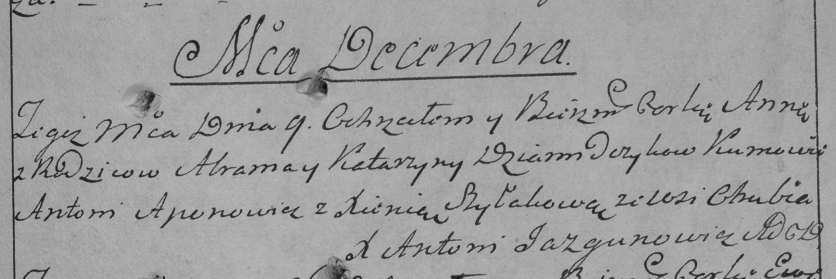 Mca Decembra.
Tegoż Mca Dnia 9. Ochrzciłem y Bierzm Corkę Annę
z Rodzicow Abrama y Katarzyny Kumowie
Antoni Aponowicz z Xienią Szyłakową ze wsi
X Antoni Jazgunowicz